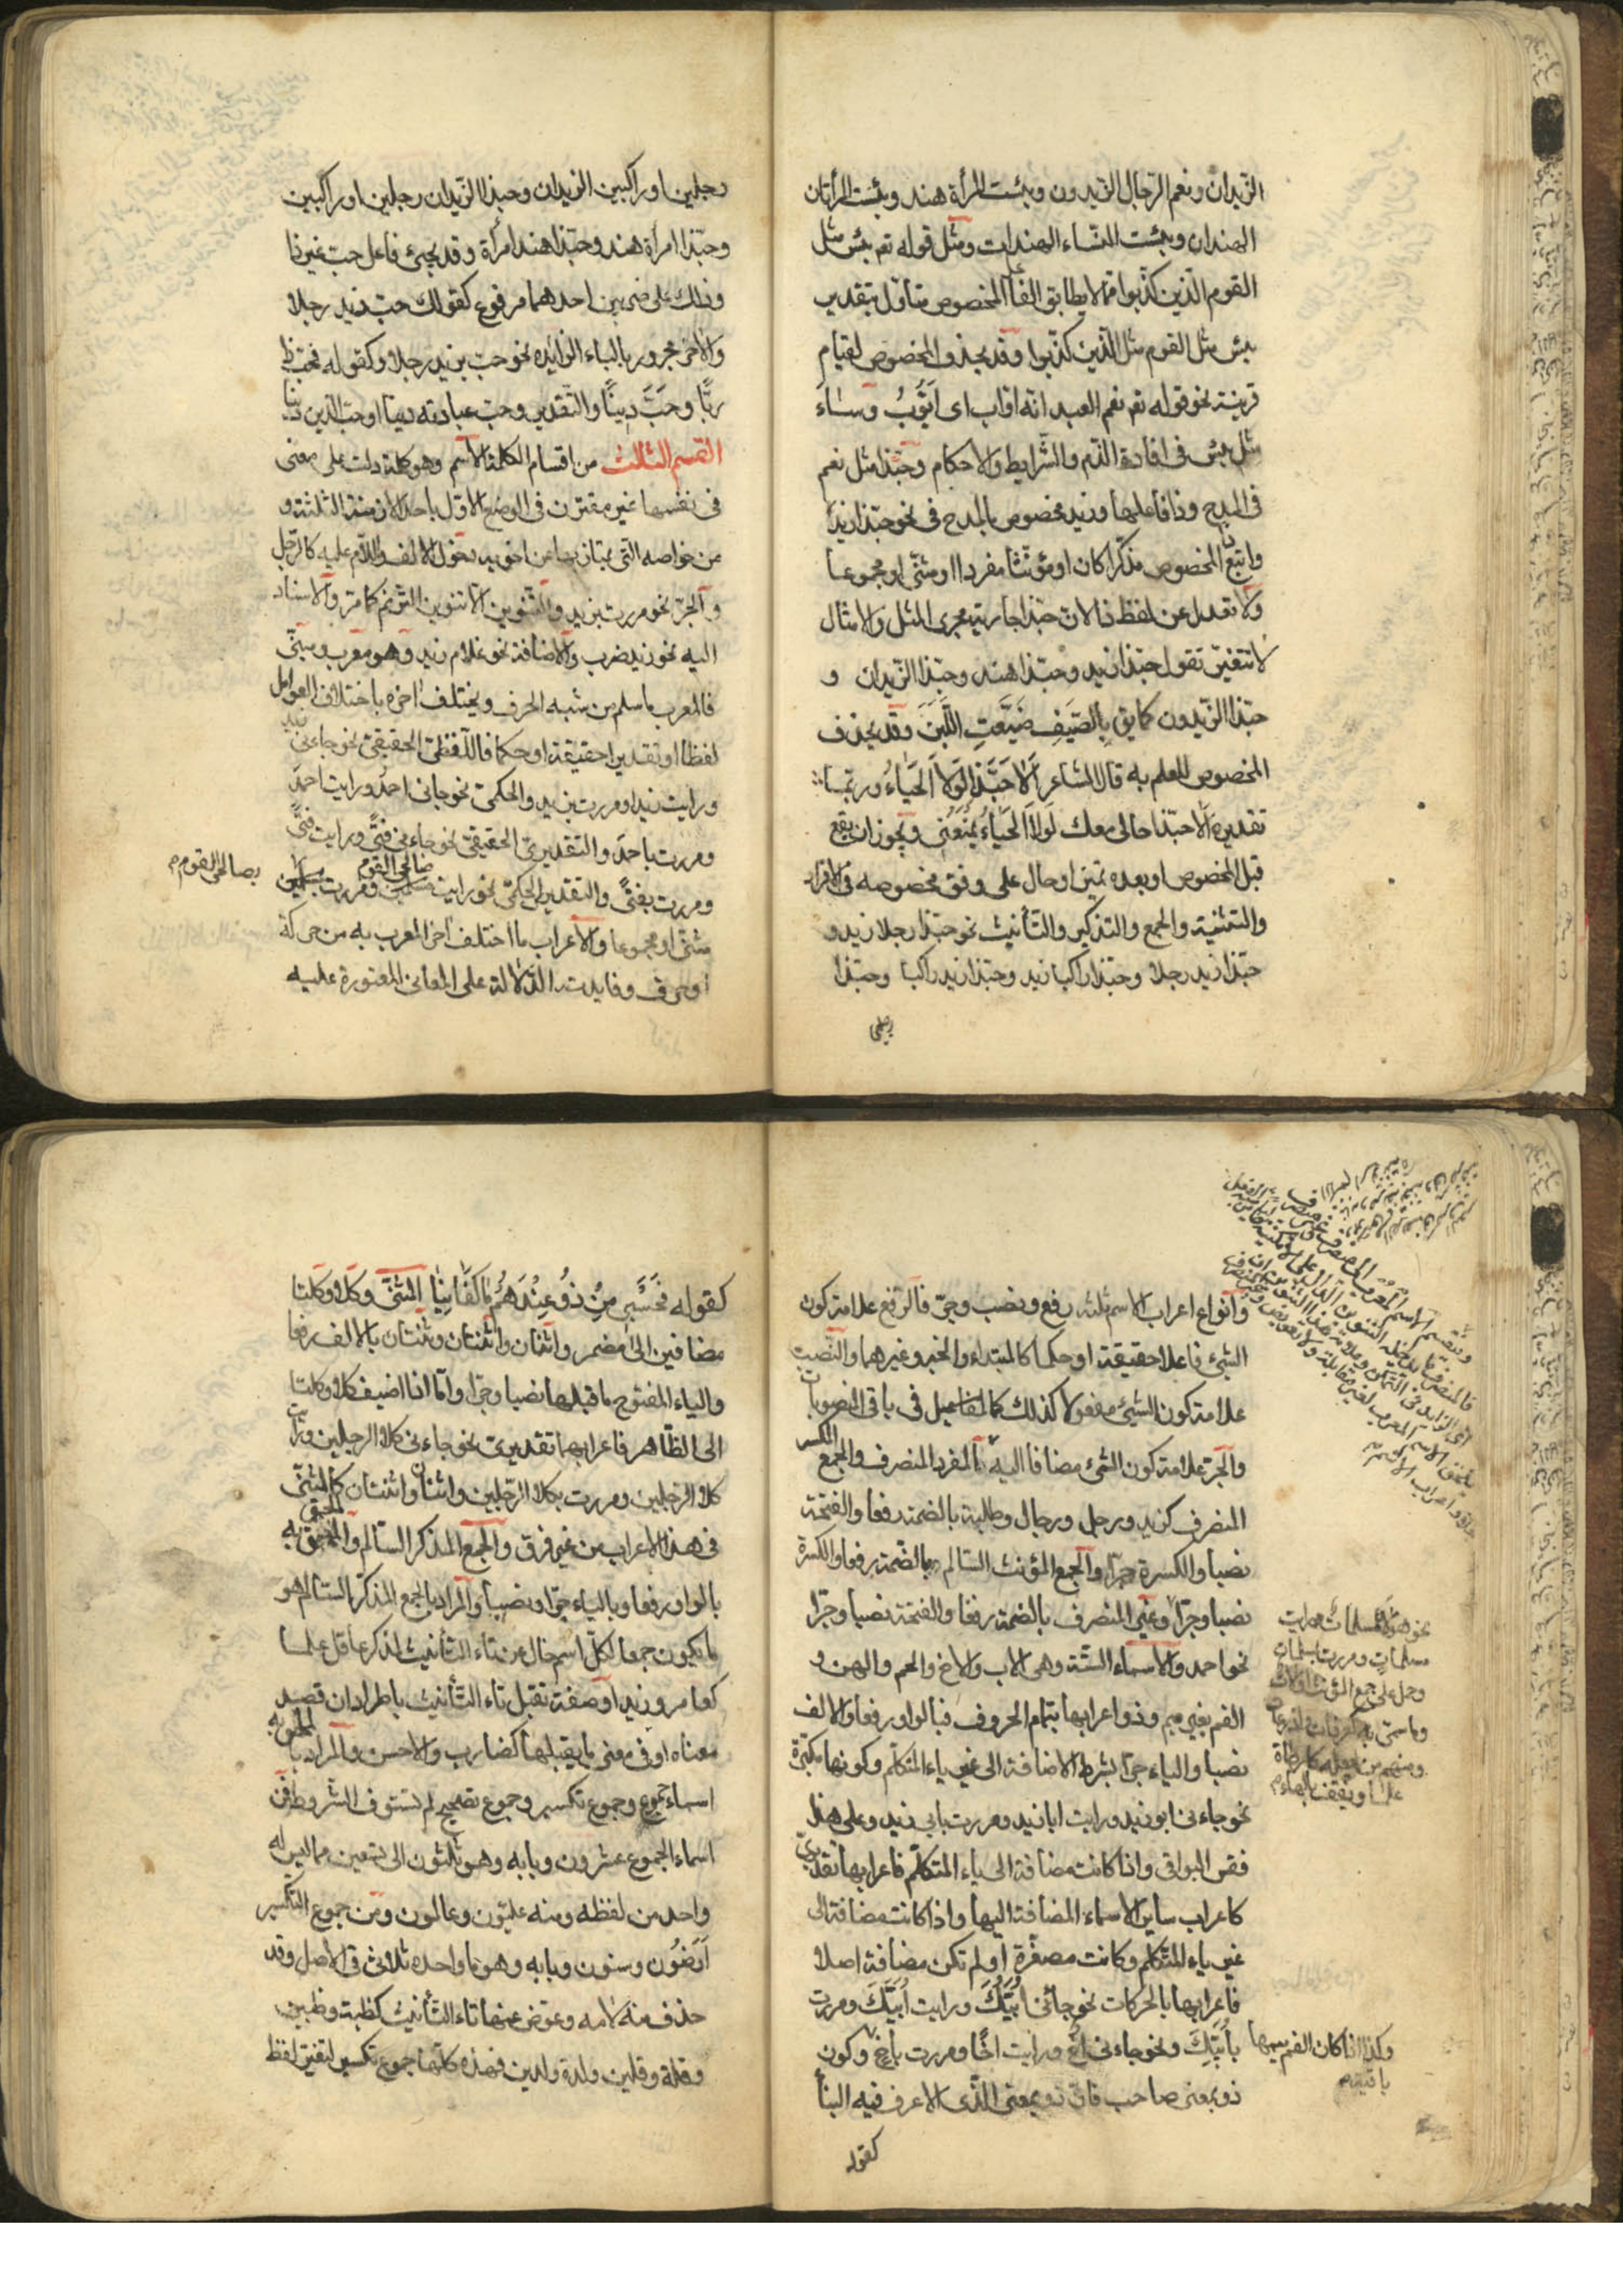 الزيدان ونعم الرجال الزيدون وبئست المرأة هند وبئست المرأتان
الهندان وبئست النساء الهندات ومثل قوله تع بئس مثل
القوم الذين كذبوا مما لا يطابق الفا المخصوص متأول بتقدير
بئس مثل القوم مثل الذين كذبوا وقد يحذف المخصوص لقيام
قرينة نحو قوله تع نعم العبد انه اواب اى ايوب وساء
مثل بئس فى افادة الذم والشرايط والاحكام وحبذا مثل نعم
فى المدح وذا فاعلها وزيد مخصوص بالمدح فى نحو حبذا زيد
واتبع ذا المخصوص مذكرا كان او مؤنثا مفردا او مثنى او مجموعا
ولا تعدل عن لفظ ذا لان حبذا جارية مجرى المثل والامثال
لا تتغير تقول حبذا زيد وحبذا هند وحبذا الزيدان و
حبذا الزيدون كما يق بالصَيفِ ضَيَّعتِ اللَّبَنَ وقد يحذف
المخصوص للعلم به قال الشاعر اَلا حَبَّذا لَولا اَلحَياءُ وربما
تقديره الا حبذا حالى معك لَولا اَلحَياءُ يَمنَعُنى ويجوز ان يقع
قبل المخصوص او بعده تميز او حال على وفق مخصوصه فى الافراد
والتثنية والجمع والتذكير والتأنيث نحو حبذا رجلا زيد و
حبذا زيد رجلا وحبذا راكبا زيد وحبذا زيد راكبا وحبذا
رجلين
رجلين او راكبين الزيدان وحبذا الزيدان رجلين او راكبين
وحبذا امرأة هند وحبذا هند امرأة وقد يجئ فاعل حب غير ذا
وذلك على ضربين احدهما مرفوع كقولك حب زيد رجلا
والاخر مجرور بالباء الزائده نحو حب بزيد رجلا وكقوله فحبذا
ربًّا وحَبَّ دِينًا والتقدير وحب عبادته دينا او حب الدين دينا
القسم الثالث من اقسام الكلمة الاسم وهو كلمة دلت على معنى
فى نفسها غير مقترن فى الوضع الاول باحد الازمنة الثلثة و
من خواصه التى يمتاز بها عن اخويه دخول الالف واللام عليه كالرجل
والجر نحو مررت بزيد والتنوين الا تنوين الترنم كما مر والاسناد
اليه نحو زيد ضرب والاضافة نحو غلام زيد وهو معرب ومبنى
فالمعرب ما سلم من شبه الحرف ويختلف اخره باختلاف العوامل
لفظا او تقديرا حقيقة او حكما فاللفظى الحقيقى نحو جاءنى زيد
ورايت زيدا ومررت بزيد والحكمى نحو جانى احمد ورايت احمد
ومررت باحمد والتقديرى الحقيقى نحو جاءنى فتًى ورايت فتًى
ومررت بفتًى والتقديرى الحكمى نحو رايت صالحى القوم ومررت
بصالحى القوم م
مثنى او مجموعا والاعراب ما اختلف اخر المعرب به من حركة
او حرف وفايدته الدلالة على المعانى المعتورة عليه
وانواع اعراب الاسم ثلثه رفع ونصب وجر فالرفع علامة كون
الشئ فاعلا حقيقة او حكما كالمبتداء والخبر وغيرهما والنصب
علامة كون الشئ مفعولا كذلك كالمفاعيل فى باقى المنصوبات
والجر علامة كون الشئ مضافا اليه فالمفرد المنصرف والجمع المكسر
المنصرف كزيد ورجل ورجال وطلبة بالضمة رفعا والفتحة
نصبا والكسرة جرا والجمع المؤنث السالم بالضمة رفعا والكسرة
نصبا وجرا وغير المنصرف بالضمة رفعا والفتحة نصبا وجرا
نحو احمد والاسماء الستة وهى الاب والاخ والحم والهن و
الفم بغير ميم وذو اعرابها بتمام الحروف فبالواو رفعا والالف
نصبا والياء جرا بشرط الاضافة الى غير ياء المتكلم وكونها مكبرة
نحو جاءنى ابو زيد ورايت ابا زيد ومررت بابى زيد وعلى هذا
فقس البواقى واذا كانت مضافة الى ياء المتكلم فاعرابها تقديرى
كاعراب ساير الاسماء المضافة اليها واذا كانت مضافة الى
غير ياء المتكلم وكانت مصغرة او لم تكن مضافة اصلا
فاعرابها بالحركات نحو جائنى أُبَيُّكَ ورايت أُبَيَّكَ ومررت
بأُبَيِّكَ ونحو جاءنى اخ ورايت اخًا ومررت باخ وكون
ذو بمعنى صاحب فان ذو بمعنى الذى الاعرف فيه البنأ
كقوله
نحو هؤلاء مسلمات ورايت
مسلمات ومررت بمسلمات
وحمل على جمع المؤنث اولات
وما سمى به كعرفات
وكذا اذا كان الفم بميمها
باقيه م
كقوله فَحَسْبِى مِنْ ذُو عِنْدَهُمْ مَا كَفَانِيَا المثنى وكلا وكلتا
مضافين الى مضمر واثنان واثنتان وثنتان بالالف رفعا
والياء المفتوح ما قبلها نصبا وجرا واما اذا اضيف كلا وكلتا
الى الظاهر فاعرابهما تقديرى نحو جاءنى كلا الرجلين ورايت
كلا الرجلين ومررت بكلا الرجلين واثنان واثنتان كالمثنى
فى هذا الاعراب من غير فرق والجمع المذكر السالم والملحق به
بالواو رفعا وبالياء جرا ونصبا والمراد بالجمع المذكر السالم هو
ما يكون جمعا لكل اسم خال عن تاء التأنيث لمذكر عاقل علما
كعامر وزيد او صفة تقبل تاء التأنيث باطراد ان قصد
معناه او فى معنى ما يقبلها كضارب والاحسن والمراد بالملحق به
اسماء جموع وجموع تكسير وجموع تصحيح لم تستوف الشروط فمن
اسماء الجموع عشرون وبابه وهو ثلثون الى تسعين مما ليس له
واحد من لفظه ومنه عليون وعالمون ومن جموع التكسير
اَرَضُون وسنون وبابه وهو ما واحده ثلاثى فى الاصل وقد
حذف منه لامه وعوض عنها تاء التأنيث كظبة وظبين
وقلة وقلين ولدة ولدين فهذه كلها جموع تكسير لتغير لفظ